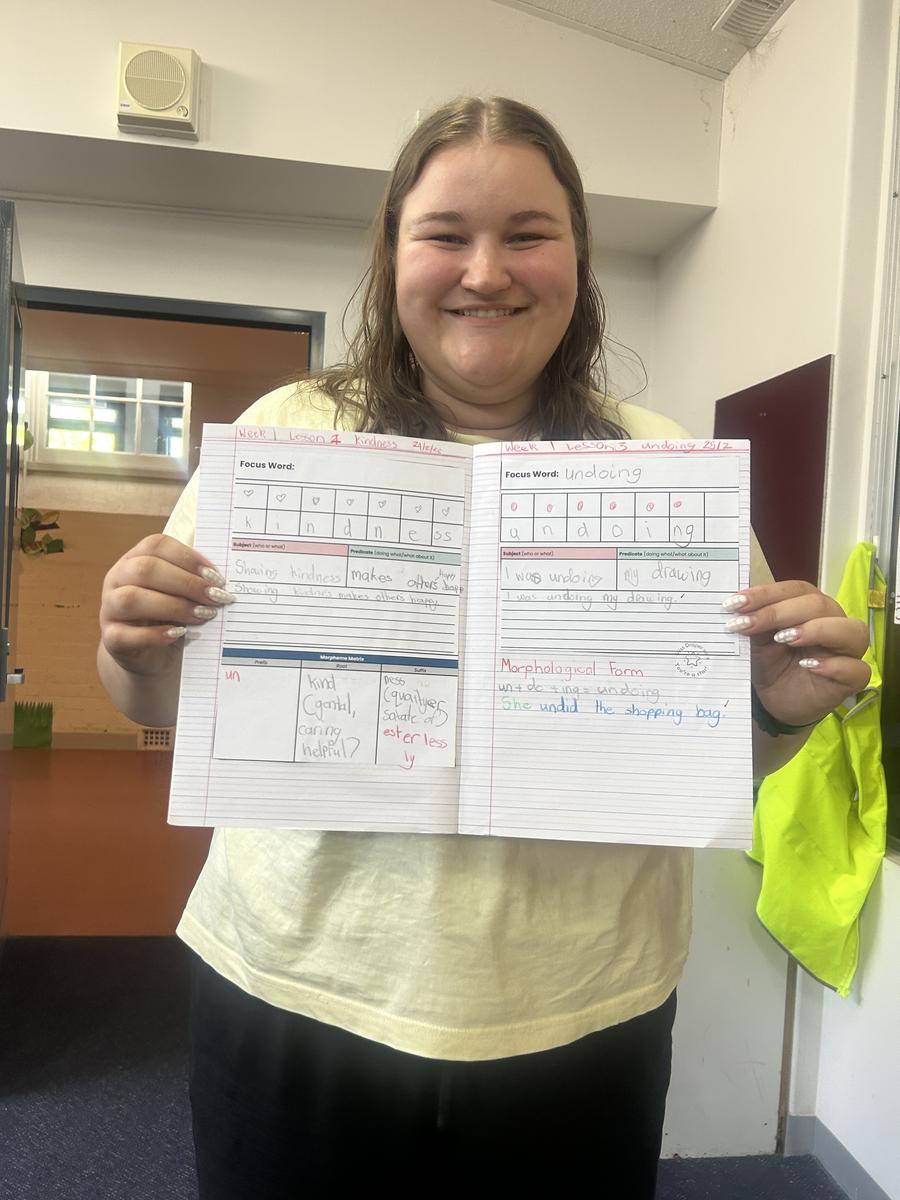 Week 1 Lesson 1 kindness
Focus Word:
k i n d n e ss
Subject (who or what) Predicate (doing what/what about it)
Showing kindness makes others happy
Showing kindness makes others happy.
Morpheme Matrix
Prefix Root Suffix
un
kind
(gental,
caring
helpful?
ness
ester less
ly
Week 1 Lesson 3 undoing 25/2
Focus Word: undoing
u n d o i ng
Subject (who or what) Predicate (doing what/what about it)
I was undoing my drawing
I was undoing my drawing.
Morphological Form
un + do + ing = undoing
She undid the shopping bag.